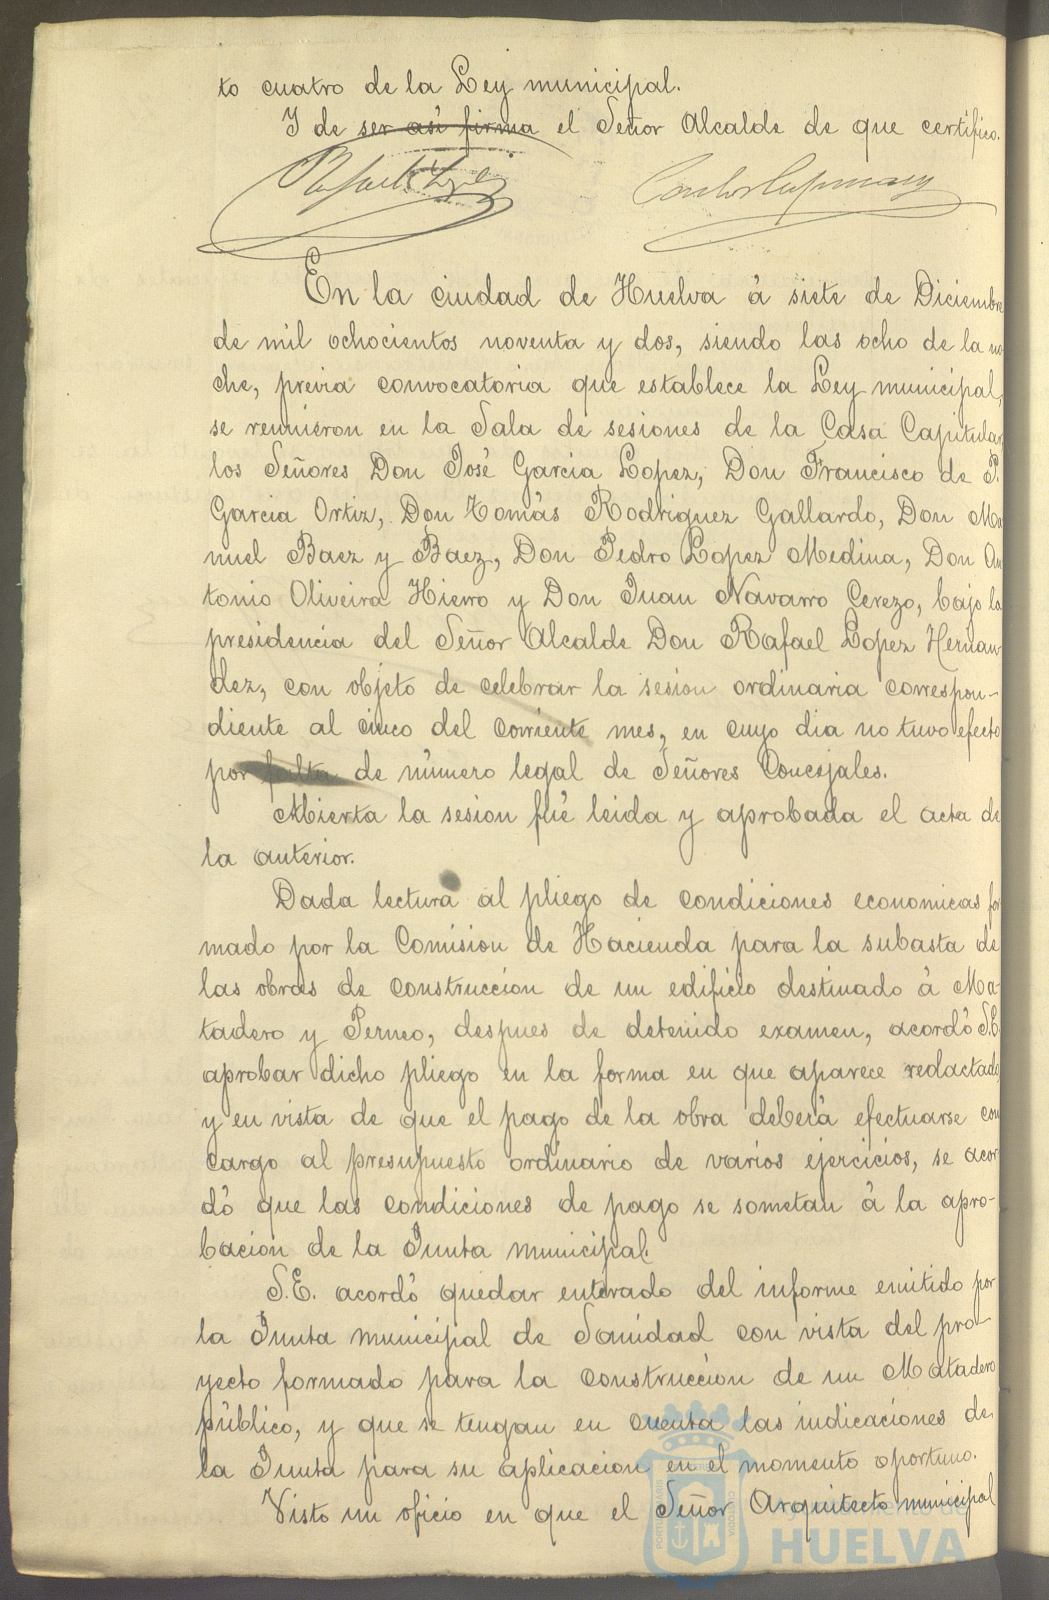 to cuatro de la Ley municipal.
Y de ser asi firma el Señor Alcalde de que certifico.
Rafael
En la ciudad de Huelva á siete de Diciembre
de mil ochocientos noventa y dos, siendo las ocho de la no
che, previa convocatoria que establece la Ley municipal,
se reunieron en la Sala de sesiones de la Casa Capitular
los Señores Don José Garcia Lopez, Don Francisco de P.
Garcia Ortiz, Don Tomás Rodriguez Gallardo, Don Ma
nuel Baez y Baez, Don Pedro Lopez Medina, Don An
tonio Oliveira Hierro y Don Juan Navarro Cerezo, bajo la
presidencia del Señor Alcalde Don Rafael Lopez Hernan-
dez, con objeto de celebrar la sesion ordinaria correspon-
diente al cinco del corriente mes, en cuyo dia no tuvo efecto
por falta de número legal de Señores Concejales.
Abierta la sesion fué leida y aprobada el acta de
la anterior.
Dada lectura al pliego de condiciones economicas for
mado por la Comision de Hacienda para la subasta de
las obras de construccion de un edificio destinado á Ma-
tadero y Perneo, despues de detenido examen, acordó S.E.
aprobar dicho pliego en la forma en que aparece redactado
y en vista de que el pago de la obra deberá efectuarse con
cargo al presupuesto ordinario de varios ejercicios, se acor
dó que las condiciones de pago se sometan á la apro-
bacion de la Junta municipal.
S.E. acordó quedar enterado del informe emitido por
la Junta municipal de Sanidad con vista del pro-
yecto formado para la construccion de un Matadero
público, y que se tengan en cuenta las indicaciones de
la Junta para su aplicacion en el momento oportuno.
Visto un oficio en que el Señor Arquitecto municipal
Ayuntamiento de
HUELVA